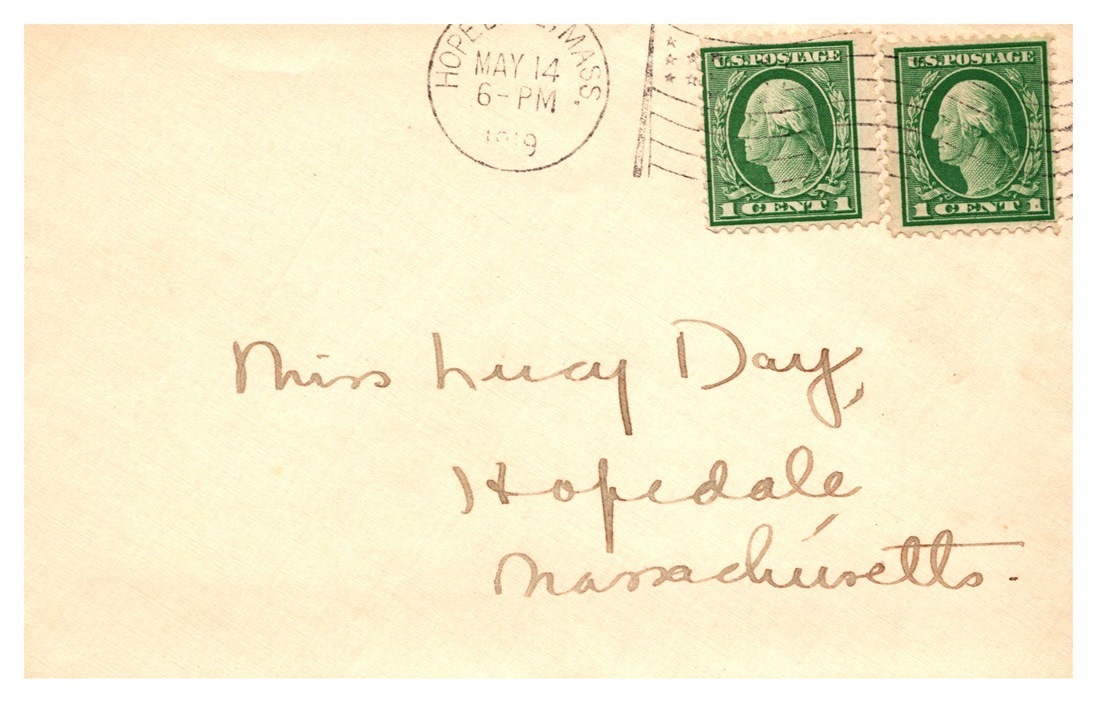 HOPEDALE, MASS.
MAY 14
6-PM
1919
U.S. POSTAGE
1 CENT 1
U.S. POSTAGE
1 CENT 1
Miss Lucy Day,
Hopedale
Massachusetts.